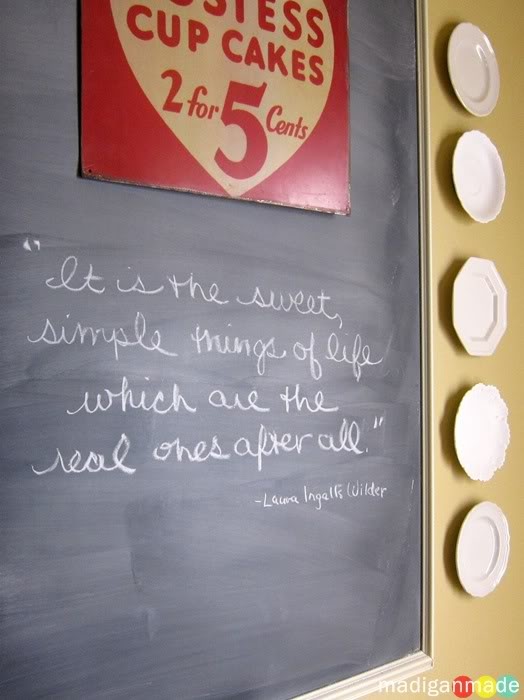 OSTESS
CUP CAKES
2 for 5 Cents
"It is the sweet,
simple things of life
which are the
real ones after all."
-Laura Ingalls Wilder
madiganmade